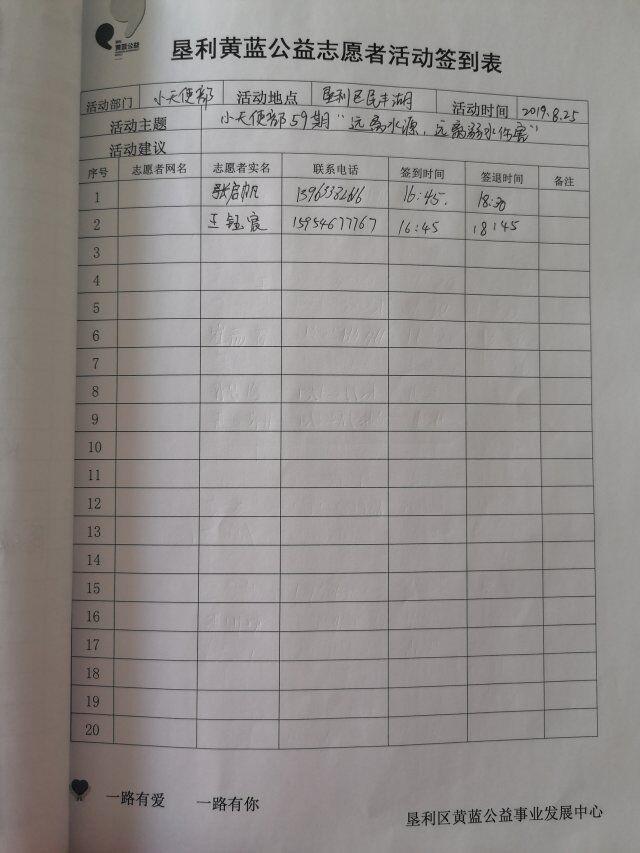 黄蓝公益
垦利黄蓝公益志愿者活动签到表
活动部门 小天使部 活动地点 垦利区民丰湖 活动时间 2019.8.25
活动主题 小天使部59期"远离水源,远离溺水伤害"
活动建议
序号 志愿者网名 志愿者实名 联系电话 签到时间 签退时间 备注
1 张启帆 16:45. 18:30
2 王钰宸 15954677767 16:45 18:45
3
4
5
6
7
8
9
10
11
12
13
14
15
16
17
18
19
20
一路有爱 一路有你
垦利区黄蓝公益事业发展中心